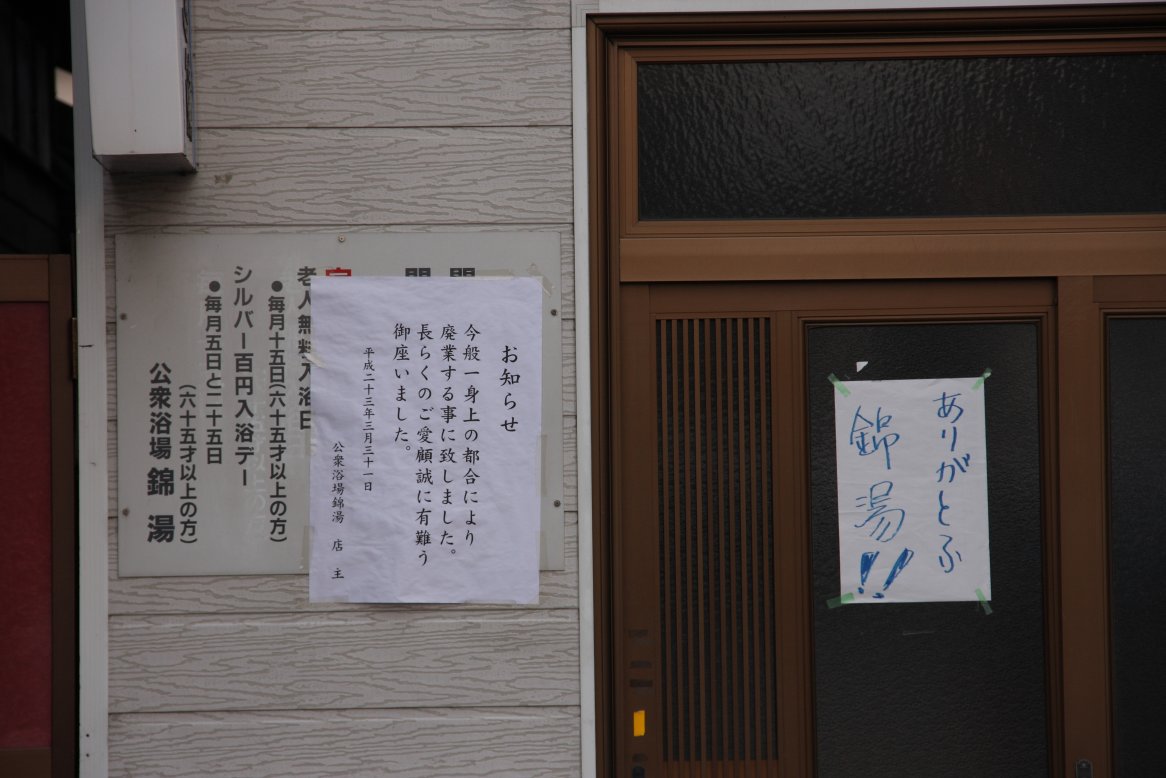 老人無料入浴日
●毎月十五日(六十五才以上の方)
シルバー百円入浴デー
●毎月五日と二十五日
(六十五才以上の方)
公衆浴場 錦湯
お知らせ
今般一身上の都合により
廃業する事に致しました。
長らくのご愛顧誠に有難う
御座いました。
平成二十三年三月三十一日
公衆浴場錦湯 店 主
ありがとふ
錦湯!!